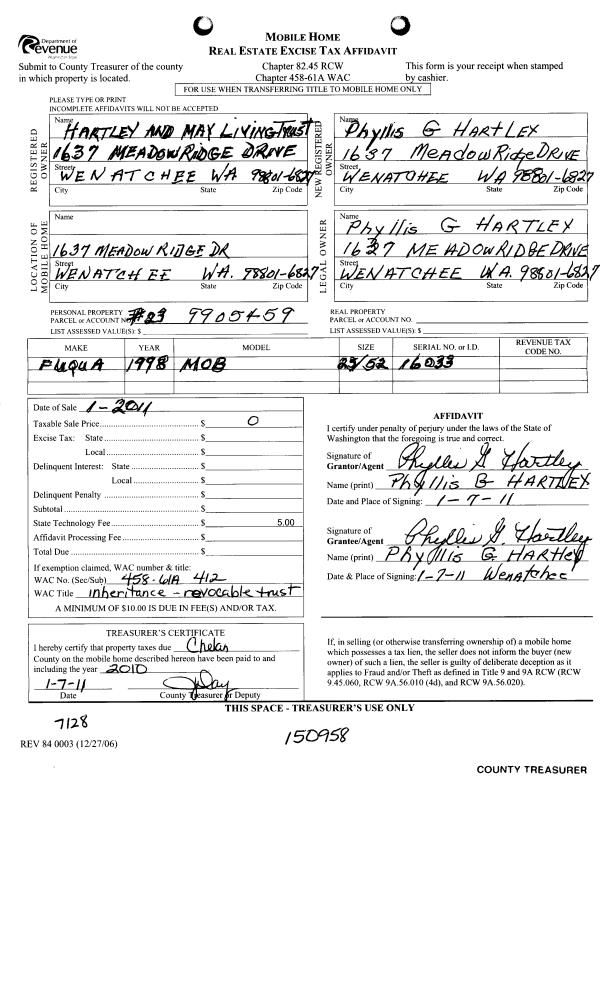 Department of
Revenue
Washington State
MOBILE HOME
REAL ESTATE EXCISE TAX AFFIDAVIT
Submit to County Treasurer of the county
in which property is located.
Chapter 82.45 RCW
Chapter 458-61A WAC
This form is your receipt when stamped
by cashier.
FOR USE WHEN TRANSFERRING TITLE TO MOBILE HOME ONLY
PLEASE TYPE OR PRINT
INCOMPLETE AFFIDAVITS WILL NOT BE ACCEPTED
REGISTERED OWNER
Name
HARTLEY AND MAY LIVING TRUST
1637 MEADOWRIDGE DRIVE
Street
WENATCHEE WA 98801-6827
City State Zip Code
NEW REGISTERED OWNER
Name
Phyllis G HARTLEY
1637 MeadowRidge DRIVE
Street
WENATCHEE WA 98801-6827
City State Zip Code
LOCATION OF MOBILE HOME
Name
1637 MEADOW RIDGE DR
Street
WENATCHEE WA. 98801-6827
City State Zip Code
LEGAL OWNER
Name
Phyllis G HARTLEY
1637 MEADOWRIDGE DRIVE
Street
WENATCHEE WA. 98801-6827
City State Zip Code
PERSONAL PROPERTY
PARCEL or ACCOUNT NO. #23 9905459
LIST ASSESSED VALUE(S): $
REAL PROPERTY
PARCEL or ACCOUNT NO.
LIST ASSESSED VALUE(S): $
MAKE YEAR MODEL SIZE SERIAL NO. or I.D. REVENUE TAX CODE NO.
FUQUA 1998 MOB 25/52 16033
Date of Sale 1-2011
Taxable Sale Price $ 0
Excise Tax: State $
Local $
Delinquent Interest: State $
Local $
Delinquent Penalty $
Subtotal $
State Technology Fee $ 5.00
Affidavit Processing Fee $
Total Due $
If exemption claimed, WAC number & title:
WAC No. (Sec/Sub) 458-61A 412
WAC Title inheritance - revocable trust
A MINIMUM OF $10.00 IS DUE IN FEE(S) AND/OR TAX.
AFFIDAVIT
I certify under penalty of perjury under the laws of the State of
Washington that the foregoing is true and correct.
Signature of
Grantor/Agent Phyllis G Hartley
Name (print) Phyllis G HARTLEY
Date and Place of Signing: 1-7-11
Signature of
Grantee/Agent Phyllis G. Hartley
Name (print) Phyllis G HARTLEY
Date & Place of Signing: 1-7-11 Wenatchee
TREASURER'S CERTIFICATE
I hereby certify that property taxes due Chelan
County on the mobile home described hereon have been paid to and
including the year 2010
1-7-11
Date County Treasurer or Deputy
If, in selling (or otherwise transferring ownership of) a mobile home
which possesses a tax lien, the seller does not inform the buyer (new
owner) of such a lien, the seller is guilty of deliberate deception as it
applies to Fraud and/or Theft as defined in Title 9 and 9A RCW (RCW
9.45.060, RCW 9A.56.010 (4d), and RCW 9A.56.020).
THIS SPACE - TREASURER'S USE ONLY
7128
150958
REV 84 0003 (12/27/06)
COUNTY TREASURER